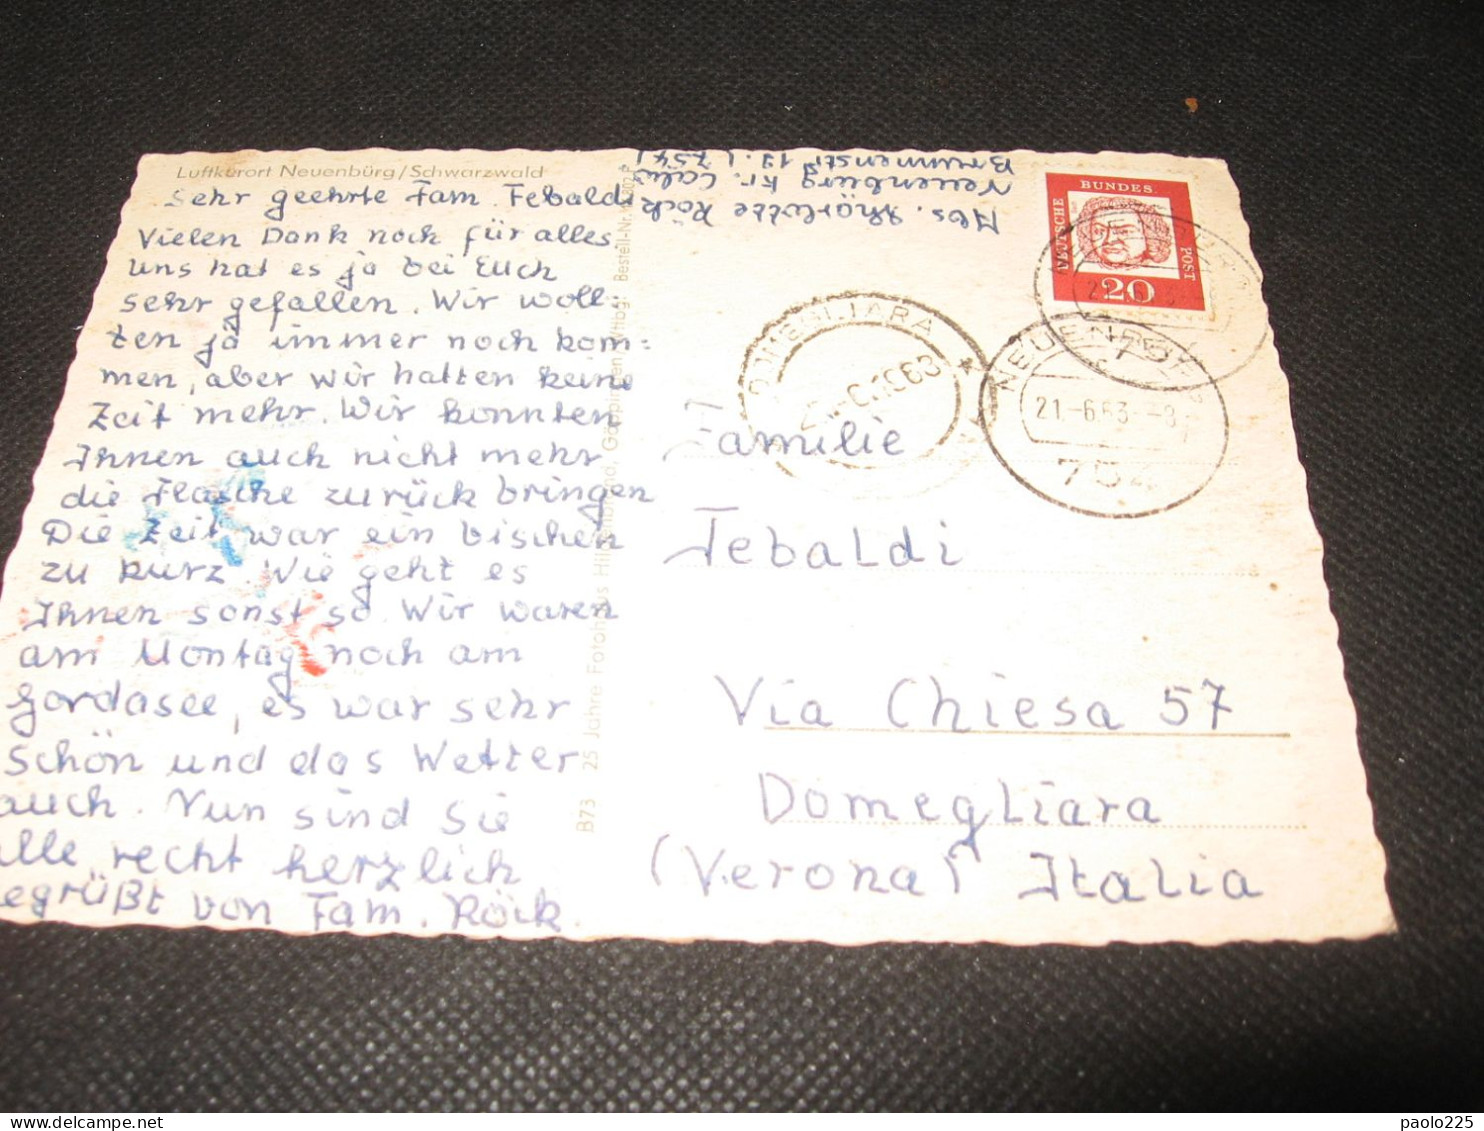 Luftkurort Neuenbürg/Schwarzwald
Sehr geehrte Fam. Tebaldi
Vielen Dank noch für alles.
Uns hat es ja bei Euch
sehr gefallen. Wir woll=
ten ja immer noch kom=
men, aber wir hatten keine
Zeit mehr. Wir konnten
Ihnen auch nicht mehr
die Flasche zurück bringen
Die Zeit war ein bischen
zu kurz. Wie geht es
Ihnen sonst so. Wir waren
am Montag noch am
Gardasee, es war sehr
Schön und das Wetter
auch. Nun sind Sie
alle recht herzlich
egrüßt von Fam. Röck.
B73 25 Jahre Fotohaus Hildenbrand, Göppingen/Wttbg. Bestell-Nr.
Abs. Röck
Neuenbürg Kr. Calw
Brunnenstr 12. (754)
DEUTSCHE
BUNDES
POST
20
DOMEGLIARA
1963
NEUENBÜRG
21.-6.63.-8
754
Familie
Tebaldi
Via Chiesa 57
Domegliara
(Verona) Italia
paolo225